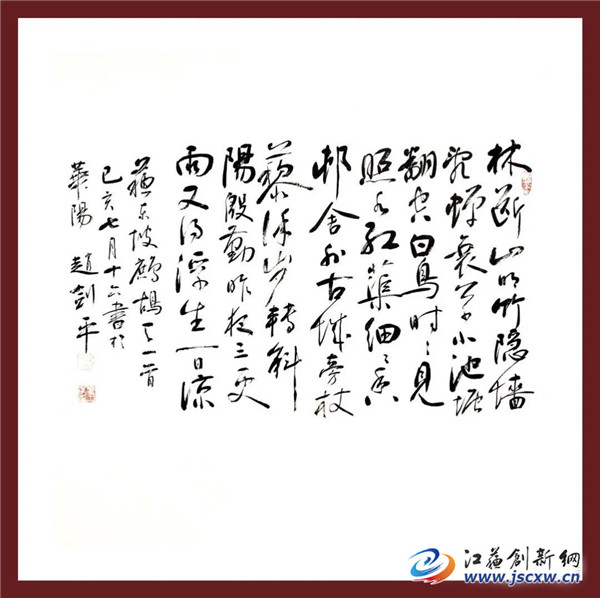 林断山明竹隐墙
乱蝉衰草小池塘
翻空白鳥时〻見
照水红蕖细〻香
邨舍外古城旁杖
藜徐步轉斜
陽殷勤昨夜三更
雨又得浮生一日凉
蘇东坡鷓鴣天一首
己亥七月十六書於
華陽 趙剑平
江蘇創新網
www.jscxw.cn